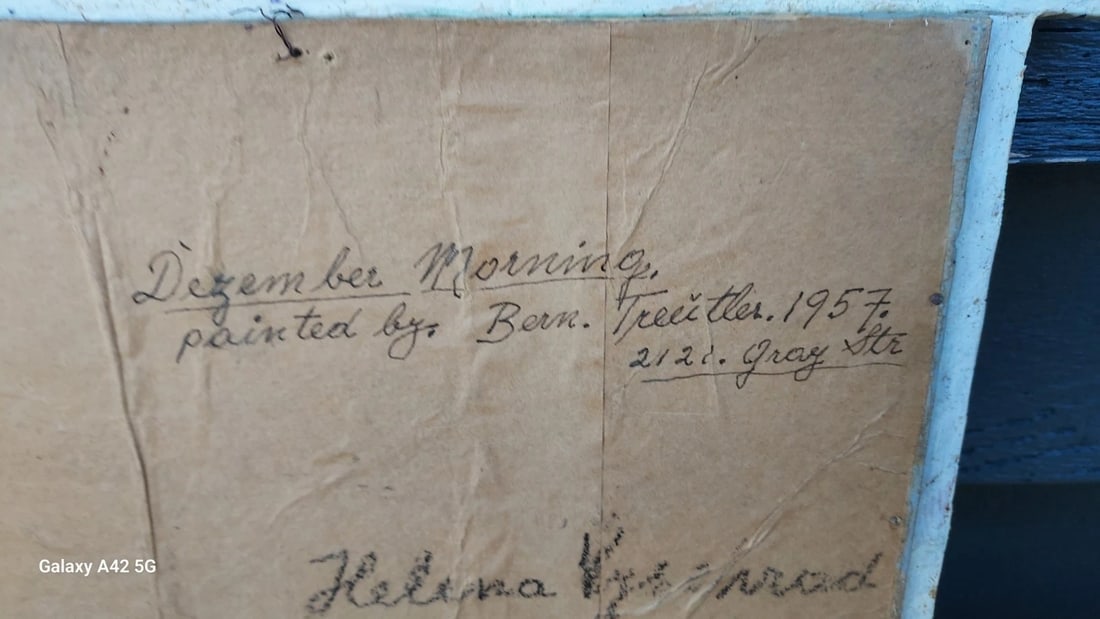 Dezember Morning.
painted by. Bern. Treütler. 1957.
2121. Gray Str
Helena
Galaxy A42 5G